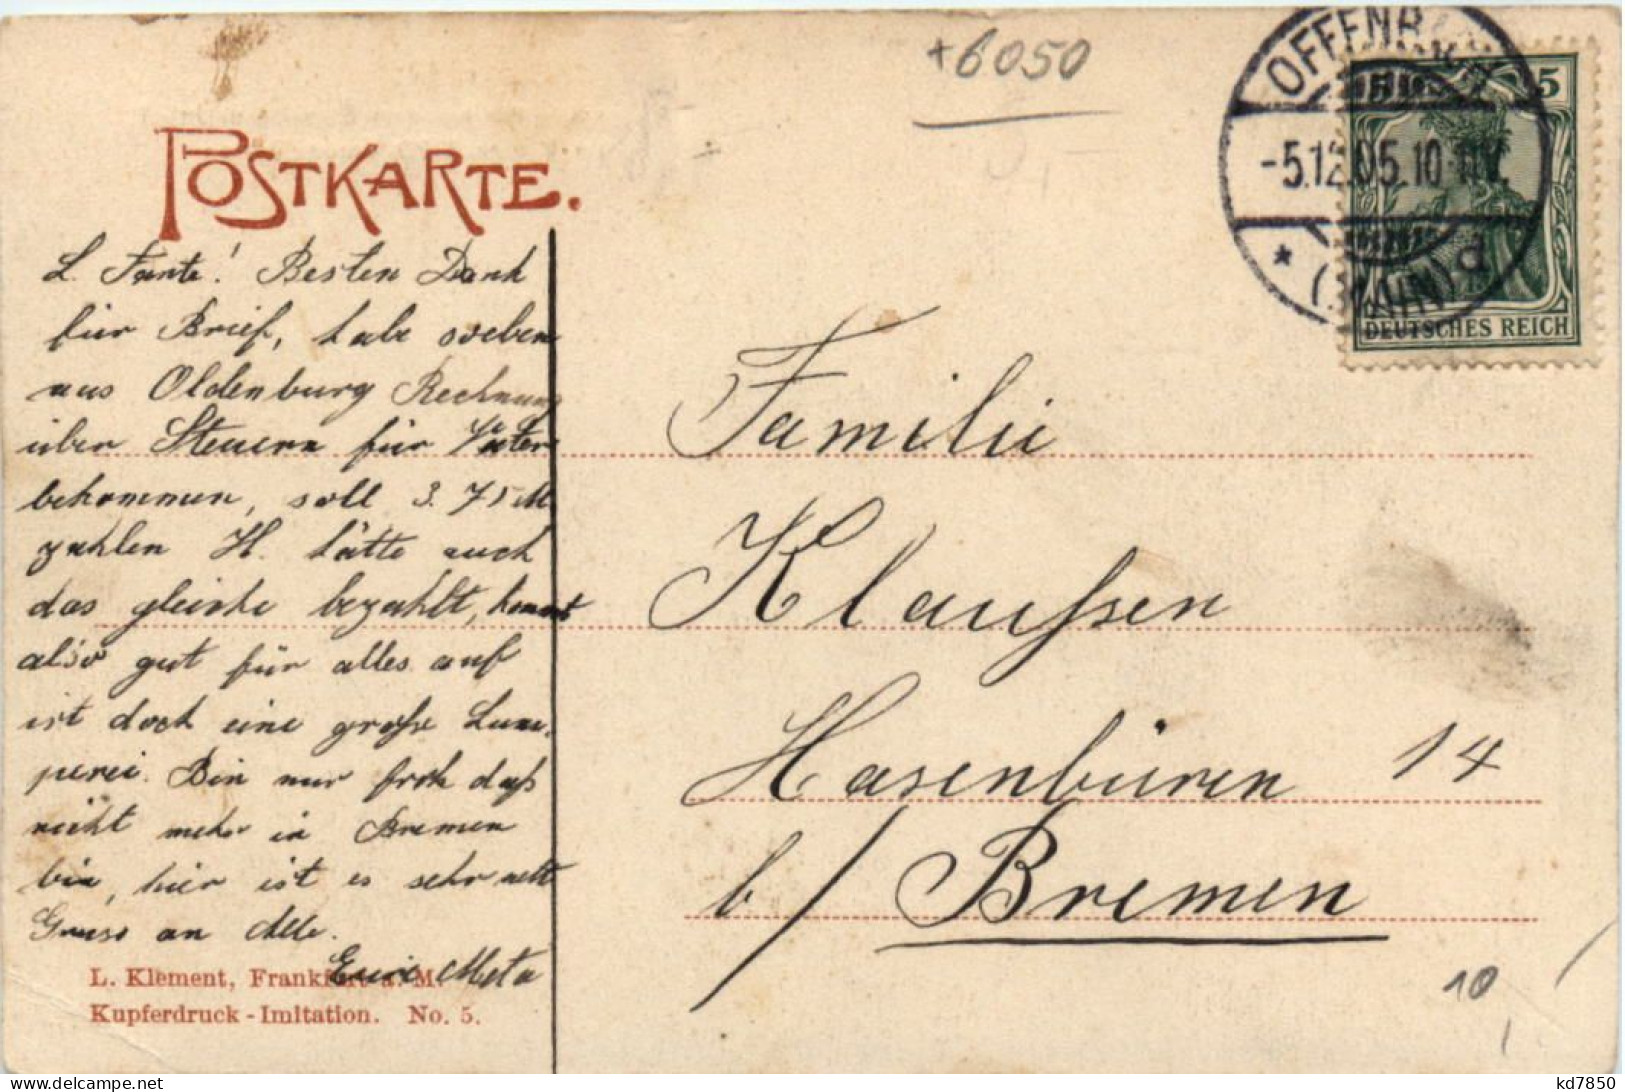 +6050
OFFENBACH
-5.12.05.10-11V.
* (MAIN) d
5 5
DEUTSCHES REICH
POSTKARTE.
L. Tante! Besten Dank
für Brief, habe soeben
aus Oldenburg Rechnung
über Steuern für Vater
bekommen, soll 3.75 M
zahlen H. hätte auch
das gleiche bezahlt, kommt
also gut für alles auf
ist doch eine große Lum-
perei. Bin nur froh daß
nicht mehr in Bremen
bin, hier ist es sehr nett
Gruss an Alle.
Eure Meta
Familie
Klaußen
Hasenbüren 14
b/ Bremen
10
L. Klement, Frankfurt a. M.
Kupferdruck - Imitation. No. 5.
kd7850